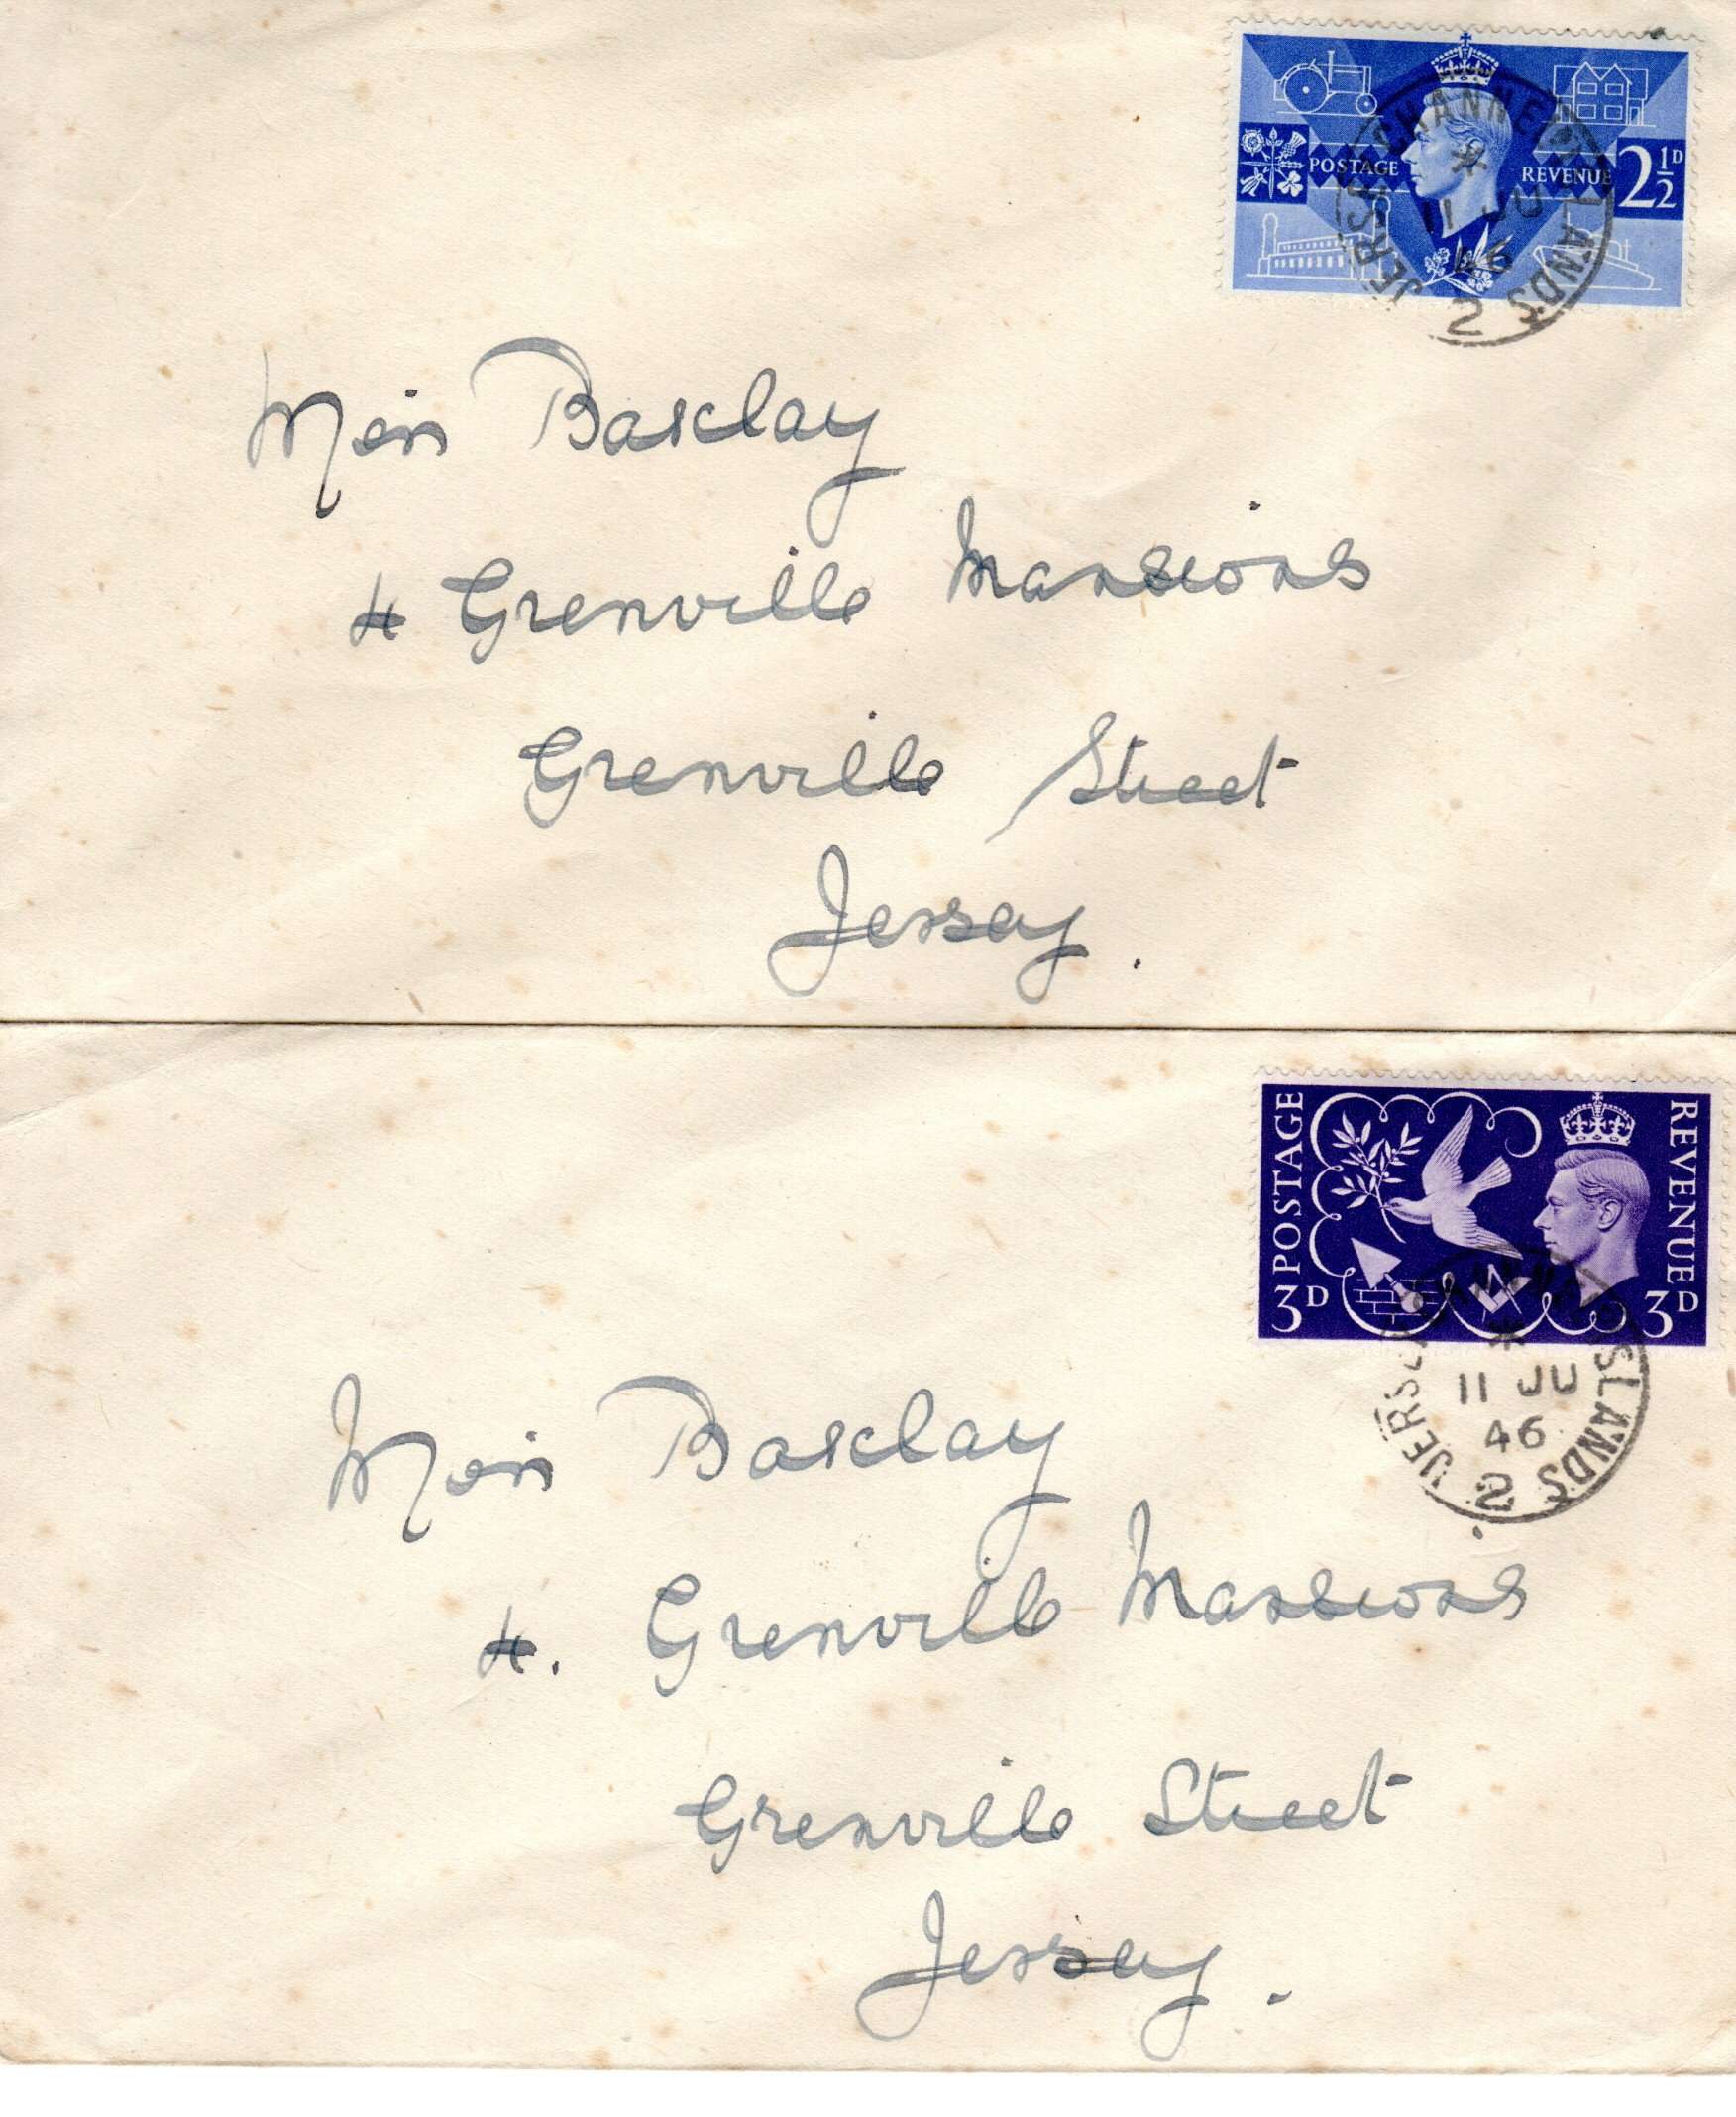 POSTAGE REVENUE 2½D
JERSEY CHANNEL ISLANDS
11 JU
46
2
Miss Barclay
4 Grenville Mansions
Grenville Street
Jersey.
POSTAGE
REVENUE
3D
3D
JERSEY CHANNEL ISLANDS
11 JU
46
2
Miss Barclay
4. Grenville Mansions
Grenville Street
Jersey.